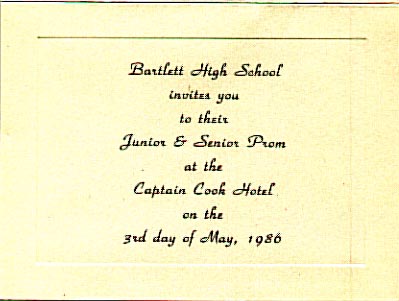 Bartlett High School
invites you
to their
Junior & Senior Prom
at the
Captain Cook Hotel
on the
3rd day of May, 1986